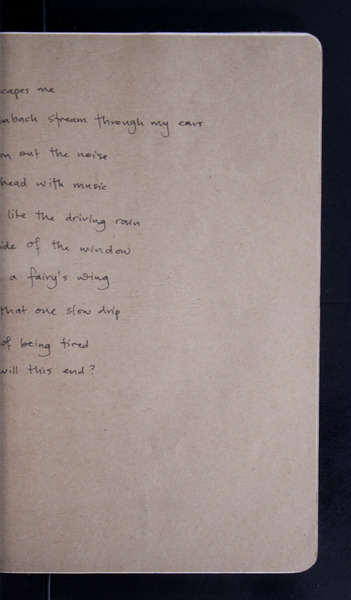 capes me
nback stream through my ears
out the noise
head with music
like the driving rain
ide of the window
a fairy's wing
that one slow drip
of being tired
will this end?